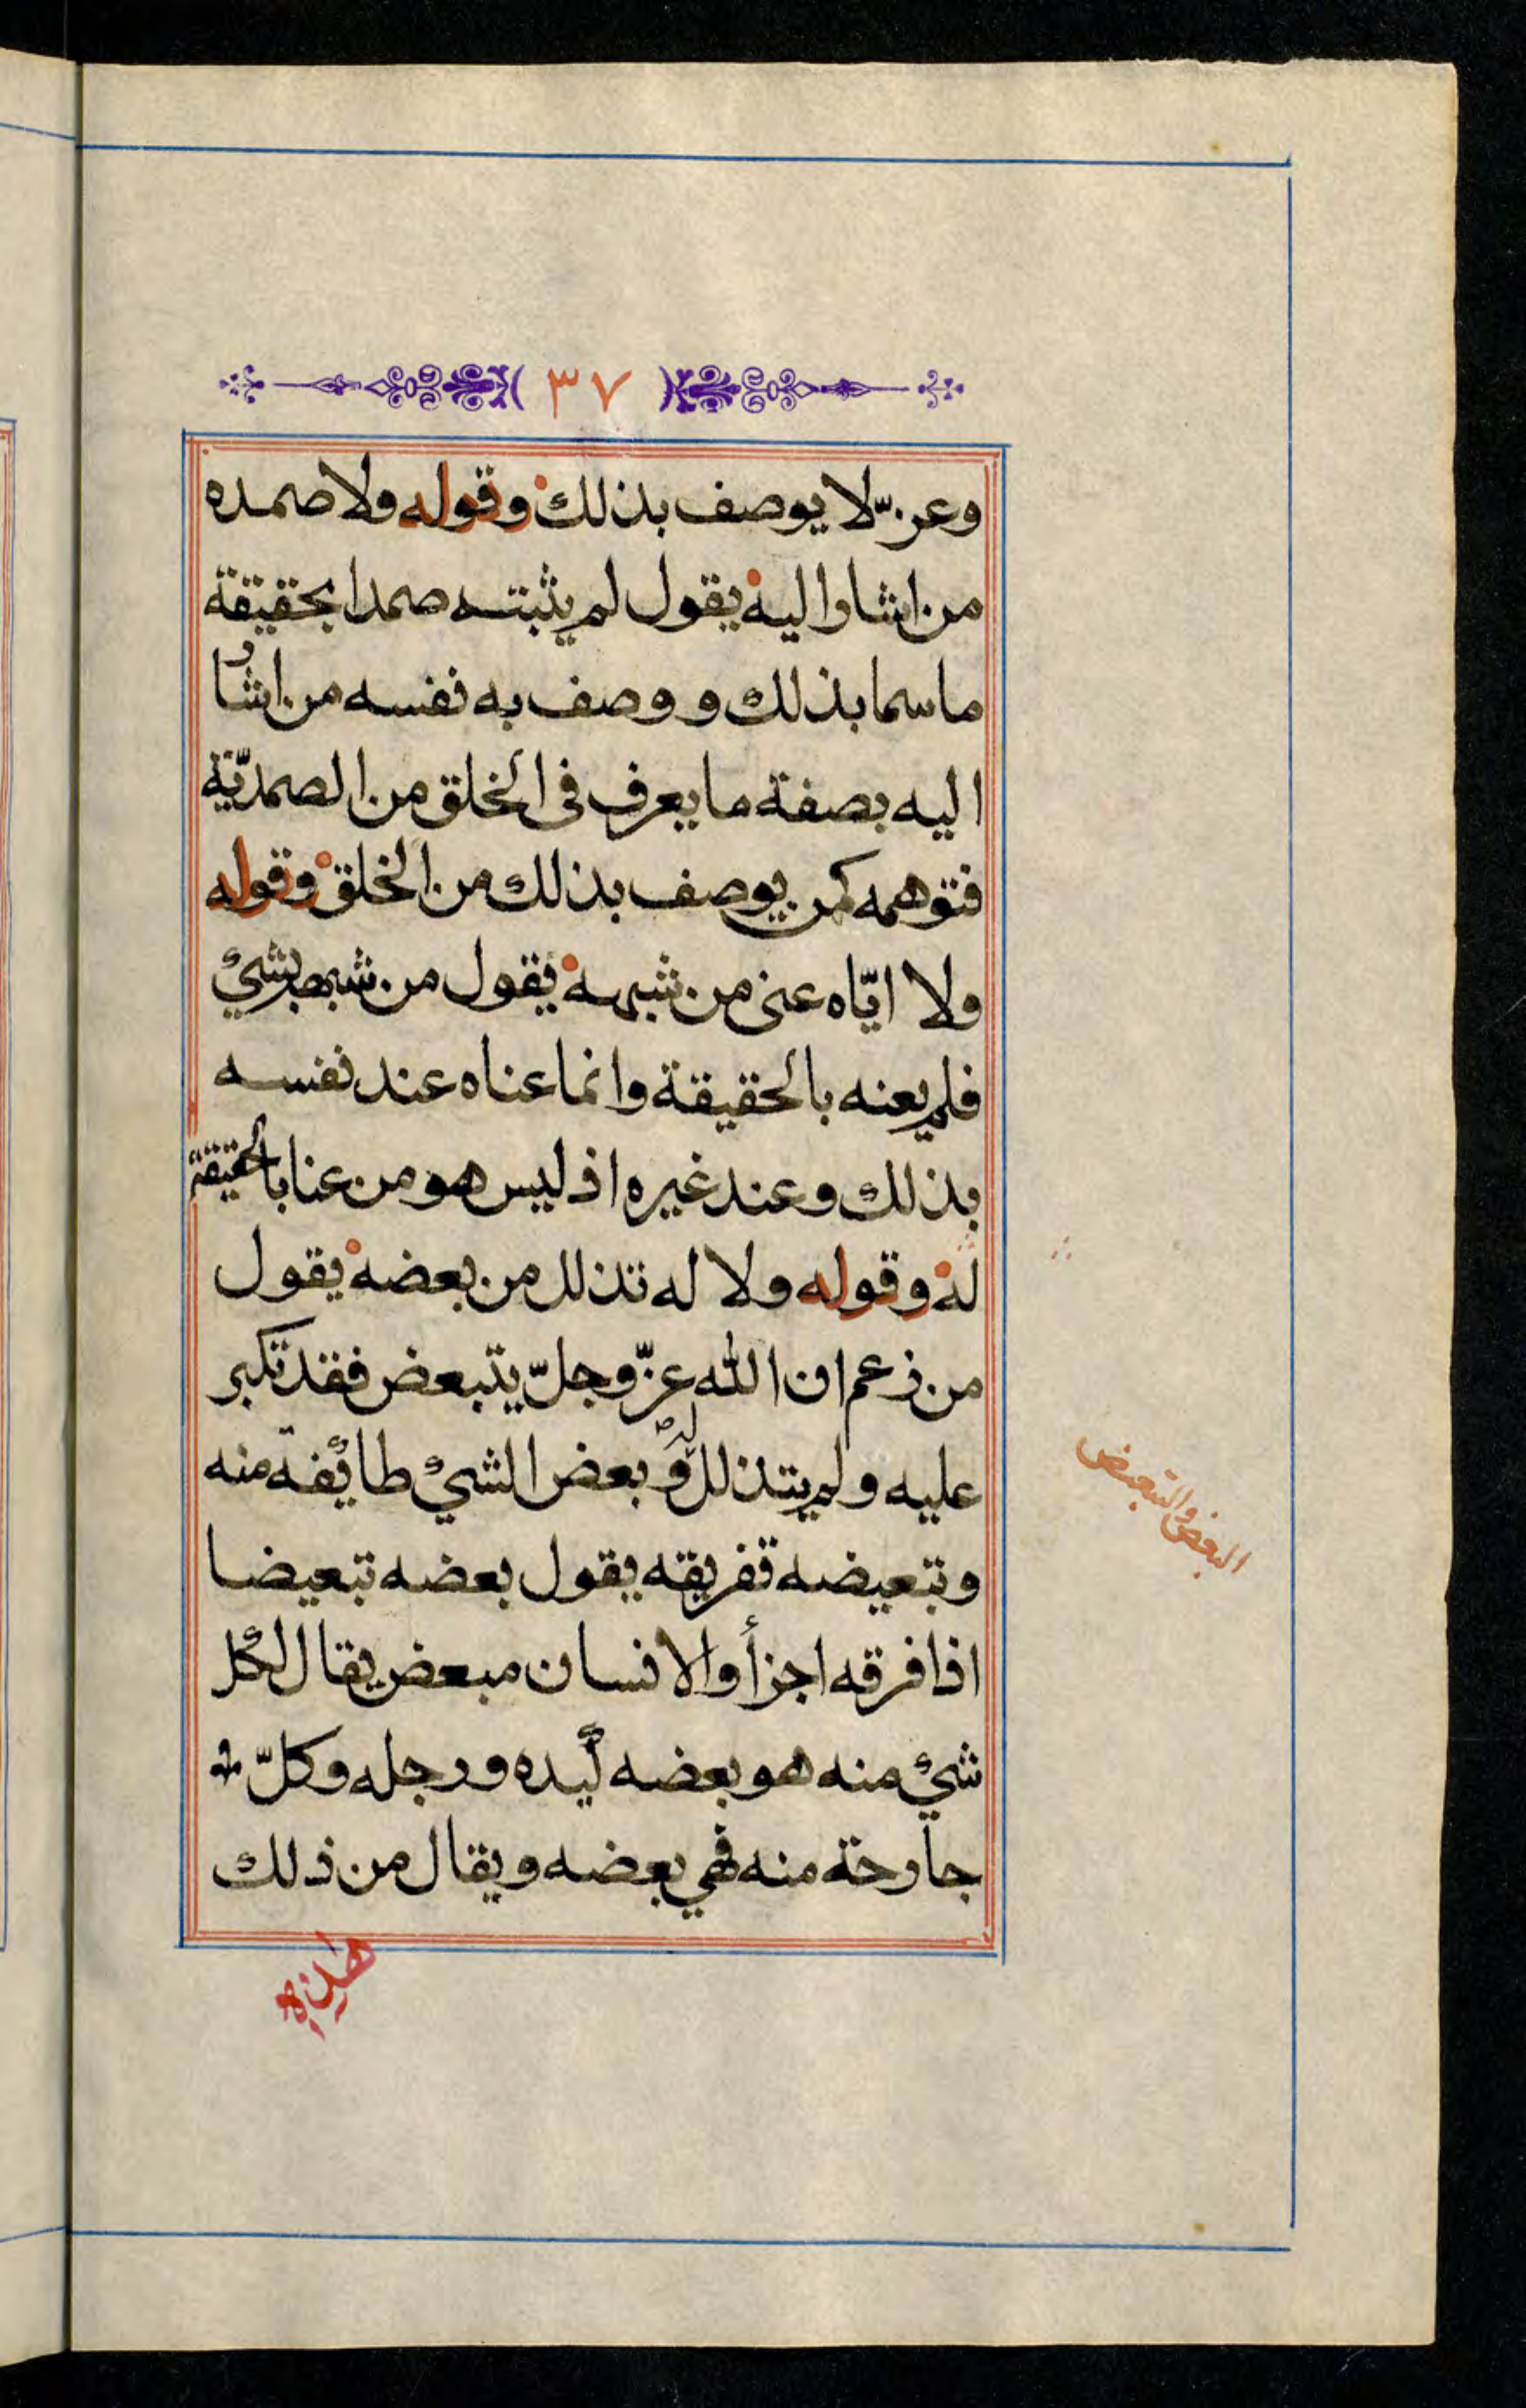 ٣٧
وعزّ لا يوصف بذلك وقوله ولا صمده
من اشار اليه يقول لم يثبته صمدا بحقيقة
ما سما بذلك و وصف به نفسه من اشار
اليه بصفة ما يعرف فى الخلق من الصمديّة
فتوهمه كمن يوصف بذلك من الخلق وقوله
ولا ايّاه عنى من شبهه فيقول من شبهه بشيئ
فلم يعنه بالحقيقة وانما عناه عند نفسه
بذلك وعند غيره اذ ليس هو من عنا بالحقيقة
له وقوله ولا له تذلل من بعضه يقول
من زعم ان الله عزّ وجلّ يتبعض فقد تكبر
عليه ولم يتذلل له و بعض الشيئ طائفة منه
وتبعيضه تفريقه يقول بعضه تبعيضا
اذا فرقه اجزأ والانسان مبعض يقال لكل
شيئ منه هو بعضه كيده ورجله وكلّ
جارحة منه فهي بعضه ويقال من ذلك
البعض والتبعيض